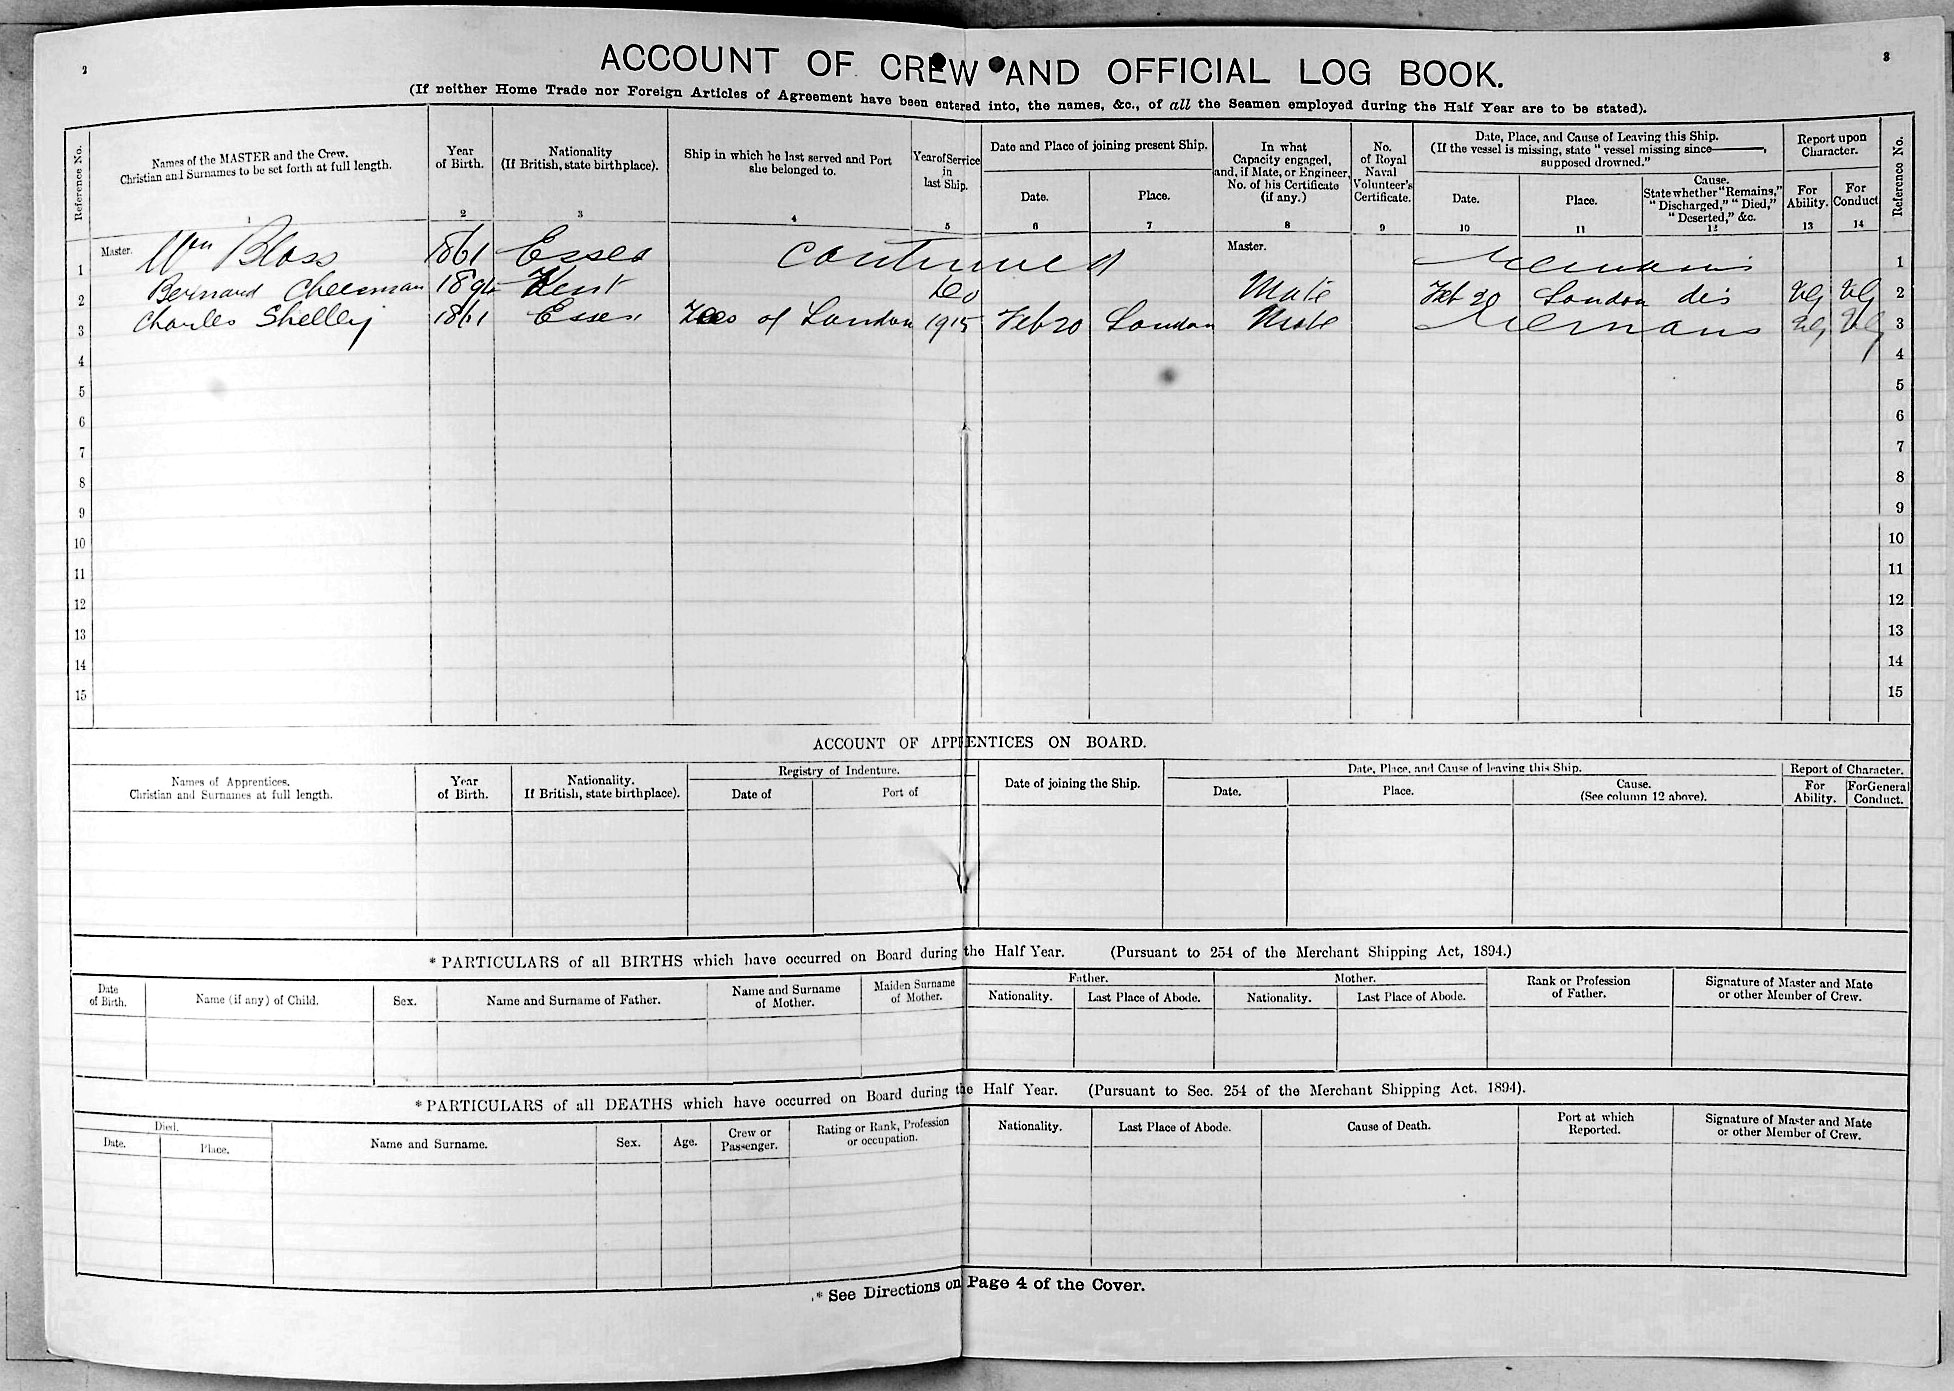 2
3
ACCOUNT OF CREW AND OFFICIAL LOG BOOK.
(If neither Home Trade nor Foreign Articles of Agreement have been entered into, the names, &c., of all the Seamen employed during the Half Year are to be stated).
Reference No.
Names of the MASTER and the Crew.
Christian and Surnames to be set forth at full length.
1
Year
of Birth.
2
Nationality
(If British, state birthplace).
3
Ship in which he last served and Port
she belonged to.
4
Year of Service
in
last Ship.
5
Date and Place of joining present Ship.
Date.
6
Place.
7
In what
Capacity engaged,
and, if Mate, or Engineer,
No. of his Certificate
(if any.)
8
No.
of Royal
Naval
Volunteer's
Certificate.
9
Date, Place, and Cause of Leaving this Ship.
(If the vessel is missing, state "vessel missing since ———,
supposed drowned."
Date.
10
Place.
11
Cause.
State whether "Remains,"
"Discharged," "Died,"
"Deserted," &c.
12
Report upon
Character.
For
Ability.
13
For
Conduct
14
Reference No.
1 Master. Wm Bloss 1861 Essex continued Master. Remains 1
2 Bernard Cheesman Kent do Mate Feb 20 London dis VG VG 2
3 Charles Shelley 1861 Essex of London 1915 Feb 20 London Mate Remans VG VG 3
4 4
5 5
6 6
7 7
8 8
9 9
10 10
11 11
12 12
13 13
14 14
15 15
ACCOUNT OF APPRENTICES ON BOARD.
Names of Apprentices.
Christian and Surnames at full length.
Year
of Birth.
Nationality.
If British, state birthplace).
Registry of Indenture.
Date of
Port of
Date of joining the Ship.
Date, Place, and Cause of leaving this Ship.
Date.
Place.
Cause.
(See column 12 above).
Report of Character.
For
Ability.
For General
Conduct.
* PARTICULARS of all BIRTHS which have occurred on Board during the Half Year. (Pursuant to 254 of the Merchant Shipping Act, 1894.)
Date
of Birth.
Name (if any) of Child.
Sex.
Name and Surname of Father.
Name and Surname
of Mother.
Maiden Surname
of Mother.
Father.
Nationality.
Last Place of Abode.
Mother.
Nationality.
Last Place of Abode.
Rank or Profession
of Father.
Signature of Master and Mate
or other Member of Crew.
* PARTICULARS of all DEATHS which have occurred on Board during the Half Year. (Pursuant to Sec. 254 of the Merchant Shipping Act. 1894).
Died.
Date.
Place.
Name and Surname.
Sex.
Age.
Crew or
Passenger.
Rating or Rank, Profession
or occupation.
Nationality.
Last Place of Abode.
Cause of Death.
Port at which
Reported.
Signature of Master and Mate
or other Member of Crew.
* See Directions on Page 4 of the Cover.